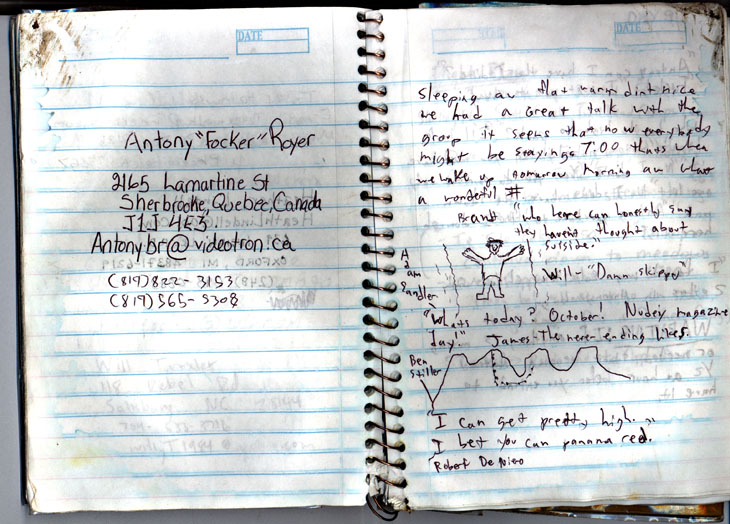 DATE
Antony "Focker" Royer
2165 Lamartine St
Sherbrooke, Quebec, Canada
J1J 4E3
Antonybr@videotron.ca
(819) 822-3153
(819) 565-5308
DATE
sleeping on flat warm dirt nice
we had a Great talk with the
group it seems that now everybody
might be staying 7:00 thats when
we wake up tomarow morning aw what
a wonderful #
Brandt "who here can honestly say
they havent thought about
suiside."
Adam
Sandler
Will- "Damn skippy"
"Whats today? October! Nudey magazine
day!" James-The never ending hikes.
Ben
Stiller
I can get pretty high.
I bet you can panama red.
Robert De niro